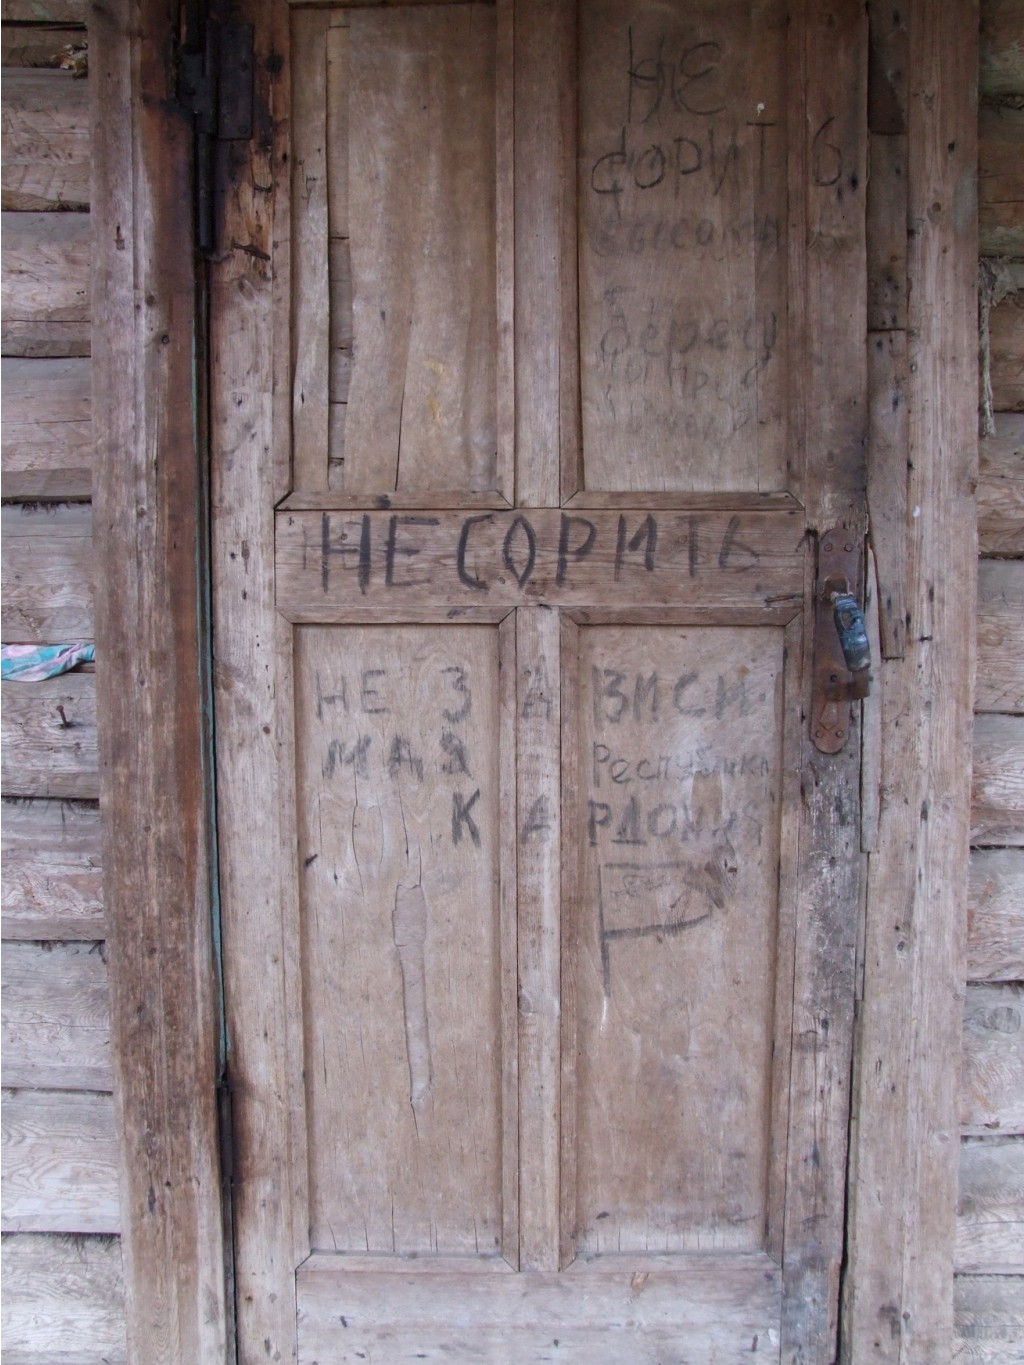 НЕ
СОРИТЬ
НЕ СОРИТЬ
НЕЗАВИСИ
МАЯ Республика
КАРДОНИЯ